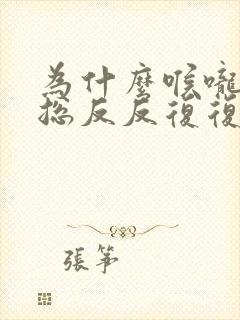 為什麼喉嚨
總反反復復
張箏